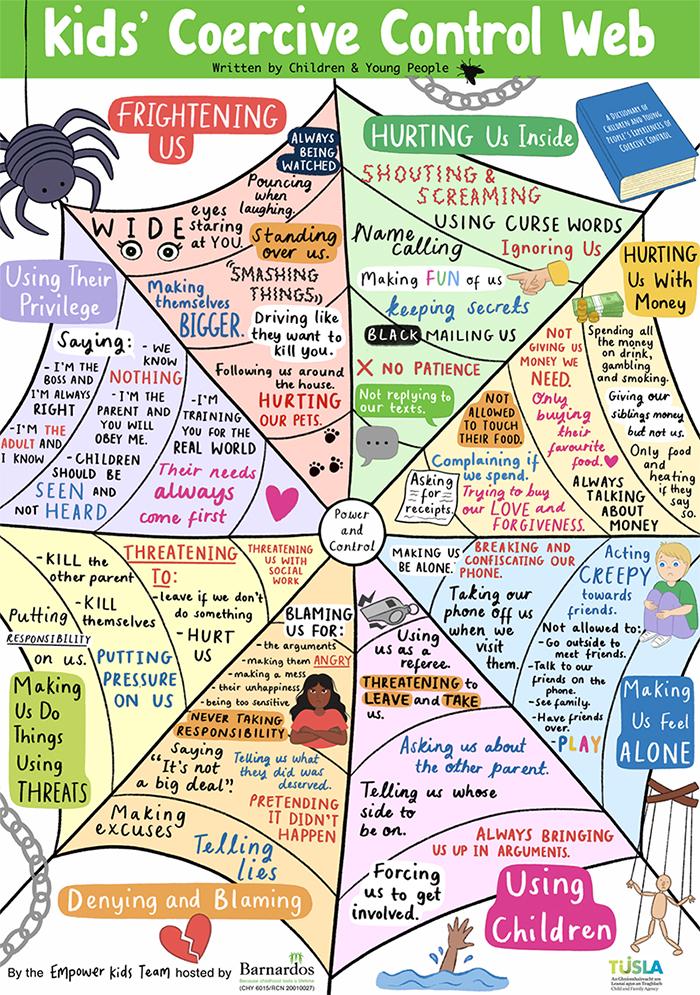 Kids' Coercive Control Web
Written by Children & Young People
FRIGHTENING
US
ALWAYS
BEING
WATCHED
Pouncing
when
laughing.
WIDE
eyes
staring
at YOU.
Standing
over us.
"SMASHING
THINGS"
Making
themselves
BIGGER.
Driving like
they want to
kill you.
Following us around
the house.
HURTING
OUR PETS.
HURTING Us Inside
A DICTIONARY OF
CHILDREN AND YOUNG
PEOPLE'S EXPERIENCES OF
COERCIVE CONTROL
SHOUTING &
SCREAMING
USING CURSE WORDS
Name
calling
Ignoring Us
Making FUN of us
keeping secrets
BLACK MAILING US
X NO PATIENCE
Not replying to
our texts.
HURTING
Us With
Money
Spending all
the money
on drink,
gambling
and smoking.
Giving our
siblings money
but not us.
Only food
and
heating
if they
say
so.
NOT
GIVING US
MONEY WE
NEED.
Only
buying
their
favourite
food.
ALWAYS
TALKING
ABOUT
MONEY
NOT
ALLOWED
TO TOUCH
THEIR FOOD.
Complaining if
we spend.
Trying to buy
our LOVE and
FORGIVENESS.
Asking
for
receipts.
Using Their
Privilege
Saying:
- I'M THE
BOSS AND
I'M ALWAYS
RIGHT
- I'M THE
ADULT AND
I KNOW
- WE
KNOW
NOTHING
- I'M THE
PARENT AND
YOU WILL
OBEY ME.
- CHILDREN
SHOULD BE
SEEN AND
NOT HEARD
-I'M
TRAINING
YOU FOR THE
REAL WORLD
Their needs
always
come first
Power
and
Control
THREATENING
TO:
THREATENING
US WITH
SOCIAL
WORK
-KILL the
other parent
-KILL
themselves
-leave if we don't
do something
-HURT
US
Putting
RESPONSIBILITY
on us.
PUTTING
PRESSURE
ON US
Making
Us Do
Things
Using
THREATS
BLAMING
US FOR:
- the arguments
- making them ANGRY
- making a mess
- their unhappiness
- being too sensitive
NEVER TAKING
RESPONSIBILITY
Saying
"It's not
a big deal".
Telling us what
they did was
deserved.
PRETENDING
IT DIDN'T
HAPPEN
Making
excuses
Telling
lies
Denying and Blaming
MAKING US
BE ALONE.
BREAKING AND
CONFISCATING OUR
PHONE.
Taking our
phone off us
when we
visit
them.
Acting
CREEPY
towards
friends.
Not allowed to:
- Go outside to
meet friends.
-Talk to our
friends on the
phone.
-See family.
-Have friends
over.
-PLAY
Making
Us Feel
ALONE
Using
us as a
referee.
THREATENING to
LEAVE and TAKE
us.
Asking us about
the other parent.
Telling us whose
side to
be on.
ALWAYS BRINGING
US UP IN ARGUMENTS.
Forcing
us to get
involved.
Using
Children
By the Empower Kids Team hosted by
Barnardos
Because childhood lasts a lifetime
(CHY 6015/RCN 20010027)
TUSLA
An Ghníomhaireacht um
Leanaí agus an Teaghlach
Child and Family Agency